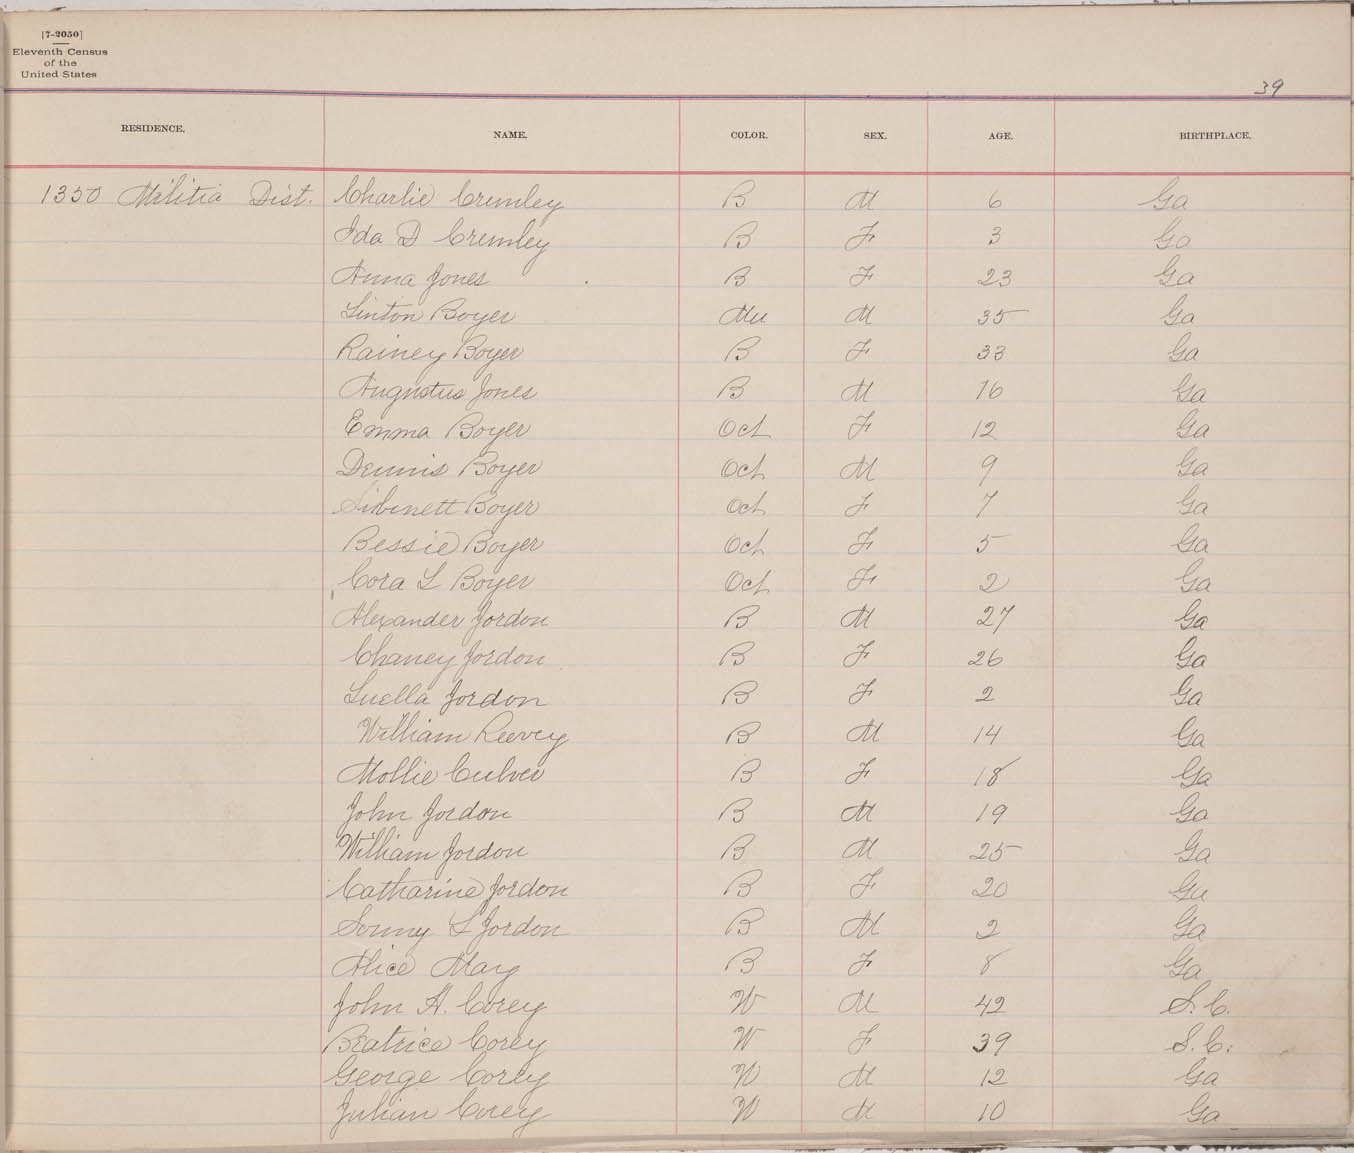 [7-2050]
Eleventh Census
of the
United States
39
RESIDENCE. NAME. COLOR. SEX. AGE. BIRTHPLACE.
1350 Militia Dist. Charlie Crumley B M 6 Ga
Ida D Crumley B F 3 Ga
Anna Jones B F 23 Ga
Linton Boyer Mu M 35 Ga
Rainey Boyer B F 33 Ga
Augustus Jones B M 16 Ga
Emma Boyer Oct F 12 Ga
Dennis Boyer Oct M 9 Ga
Boyer Oct F 7 Ga
Bessie Boyer Oct F 5 Ga
Cora L Boyer Oct F 2 Ga
Alexander Jordon B M 27 Ga
Chaney Jordon B F 26 Ga
Luella Jordon B F 2 Ga
William Reevey B M 14 Ga
Mollie Culver B F 18 Ga
John Jordon B M 19 Ga
William Jordon B M 25 Ga
Catharine Jordon B F 20 Ga
Sonny L Jordon B M 2 Ga
Alice May B F 8 Ga
John H. Corey W M 42 S.C.
Beatrice Corey W F 39 S.C.
George Corey W M 12 Ga
Julian Corey W M 10 Ga